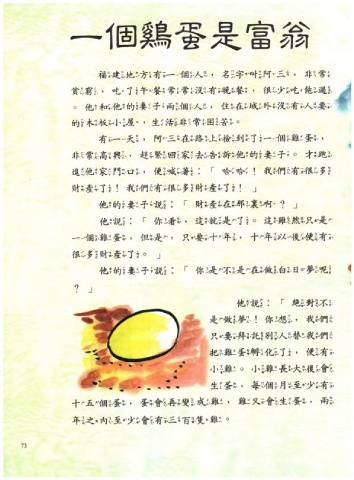 一個鷄蛋是富翁
福建地方有一個人，名字叫阿三，非常
貧窮，吃了午餐常常沒有晚餐，很少吃飽過
。他和他的妻子兩個人，住在城外沒有人要
的木板小屋，生活非常困苦。
有一天，阿三在路上撿到了一個雞蛋，
非常高興，趕緊回家去告訴他的妻子。才跑
進他家門口，便喊著：「哈哈！我們有很多
財產了！我們有很多財產了！」
他的妻子說：「財產在那裏啊？」
他說：「你看，這就是了。這雖然只是
一個雞蛋，但是，只要十年，十年以後便有
很多財產了。」
他的妻子說：「你是不是在做白日夢呢
？」
他說：「絕對不
是做夢！你想，我們
只要拜託別人替我們
把雞蛋孵化了，便有
小雞。小雞長大後會
生蛋，每個月至少有
十五個蛋，蛋會再變成雞，雞又會生蛋，兩
年之內至少會有三百隻雞。
73